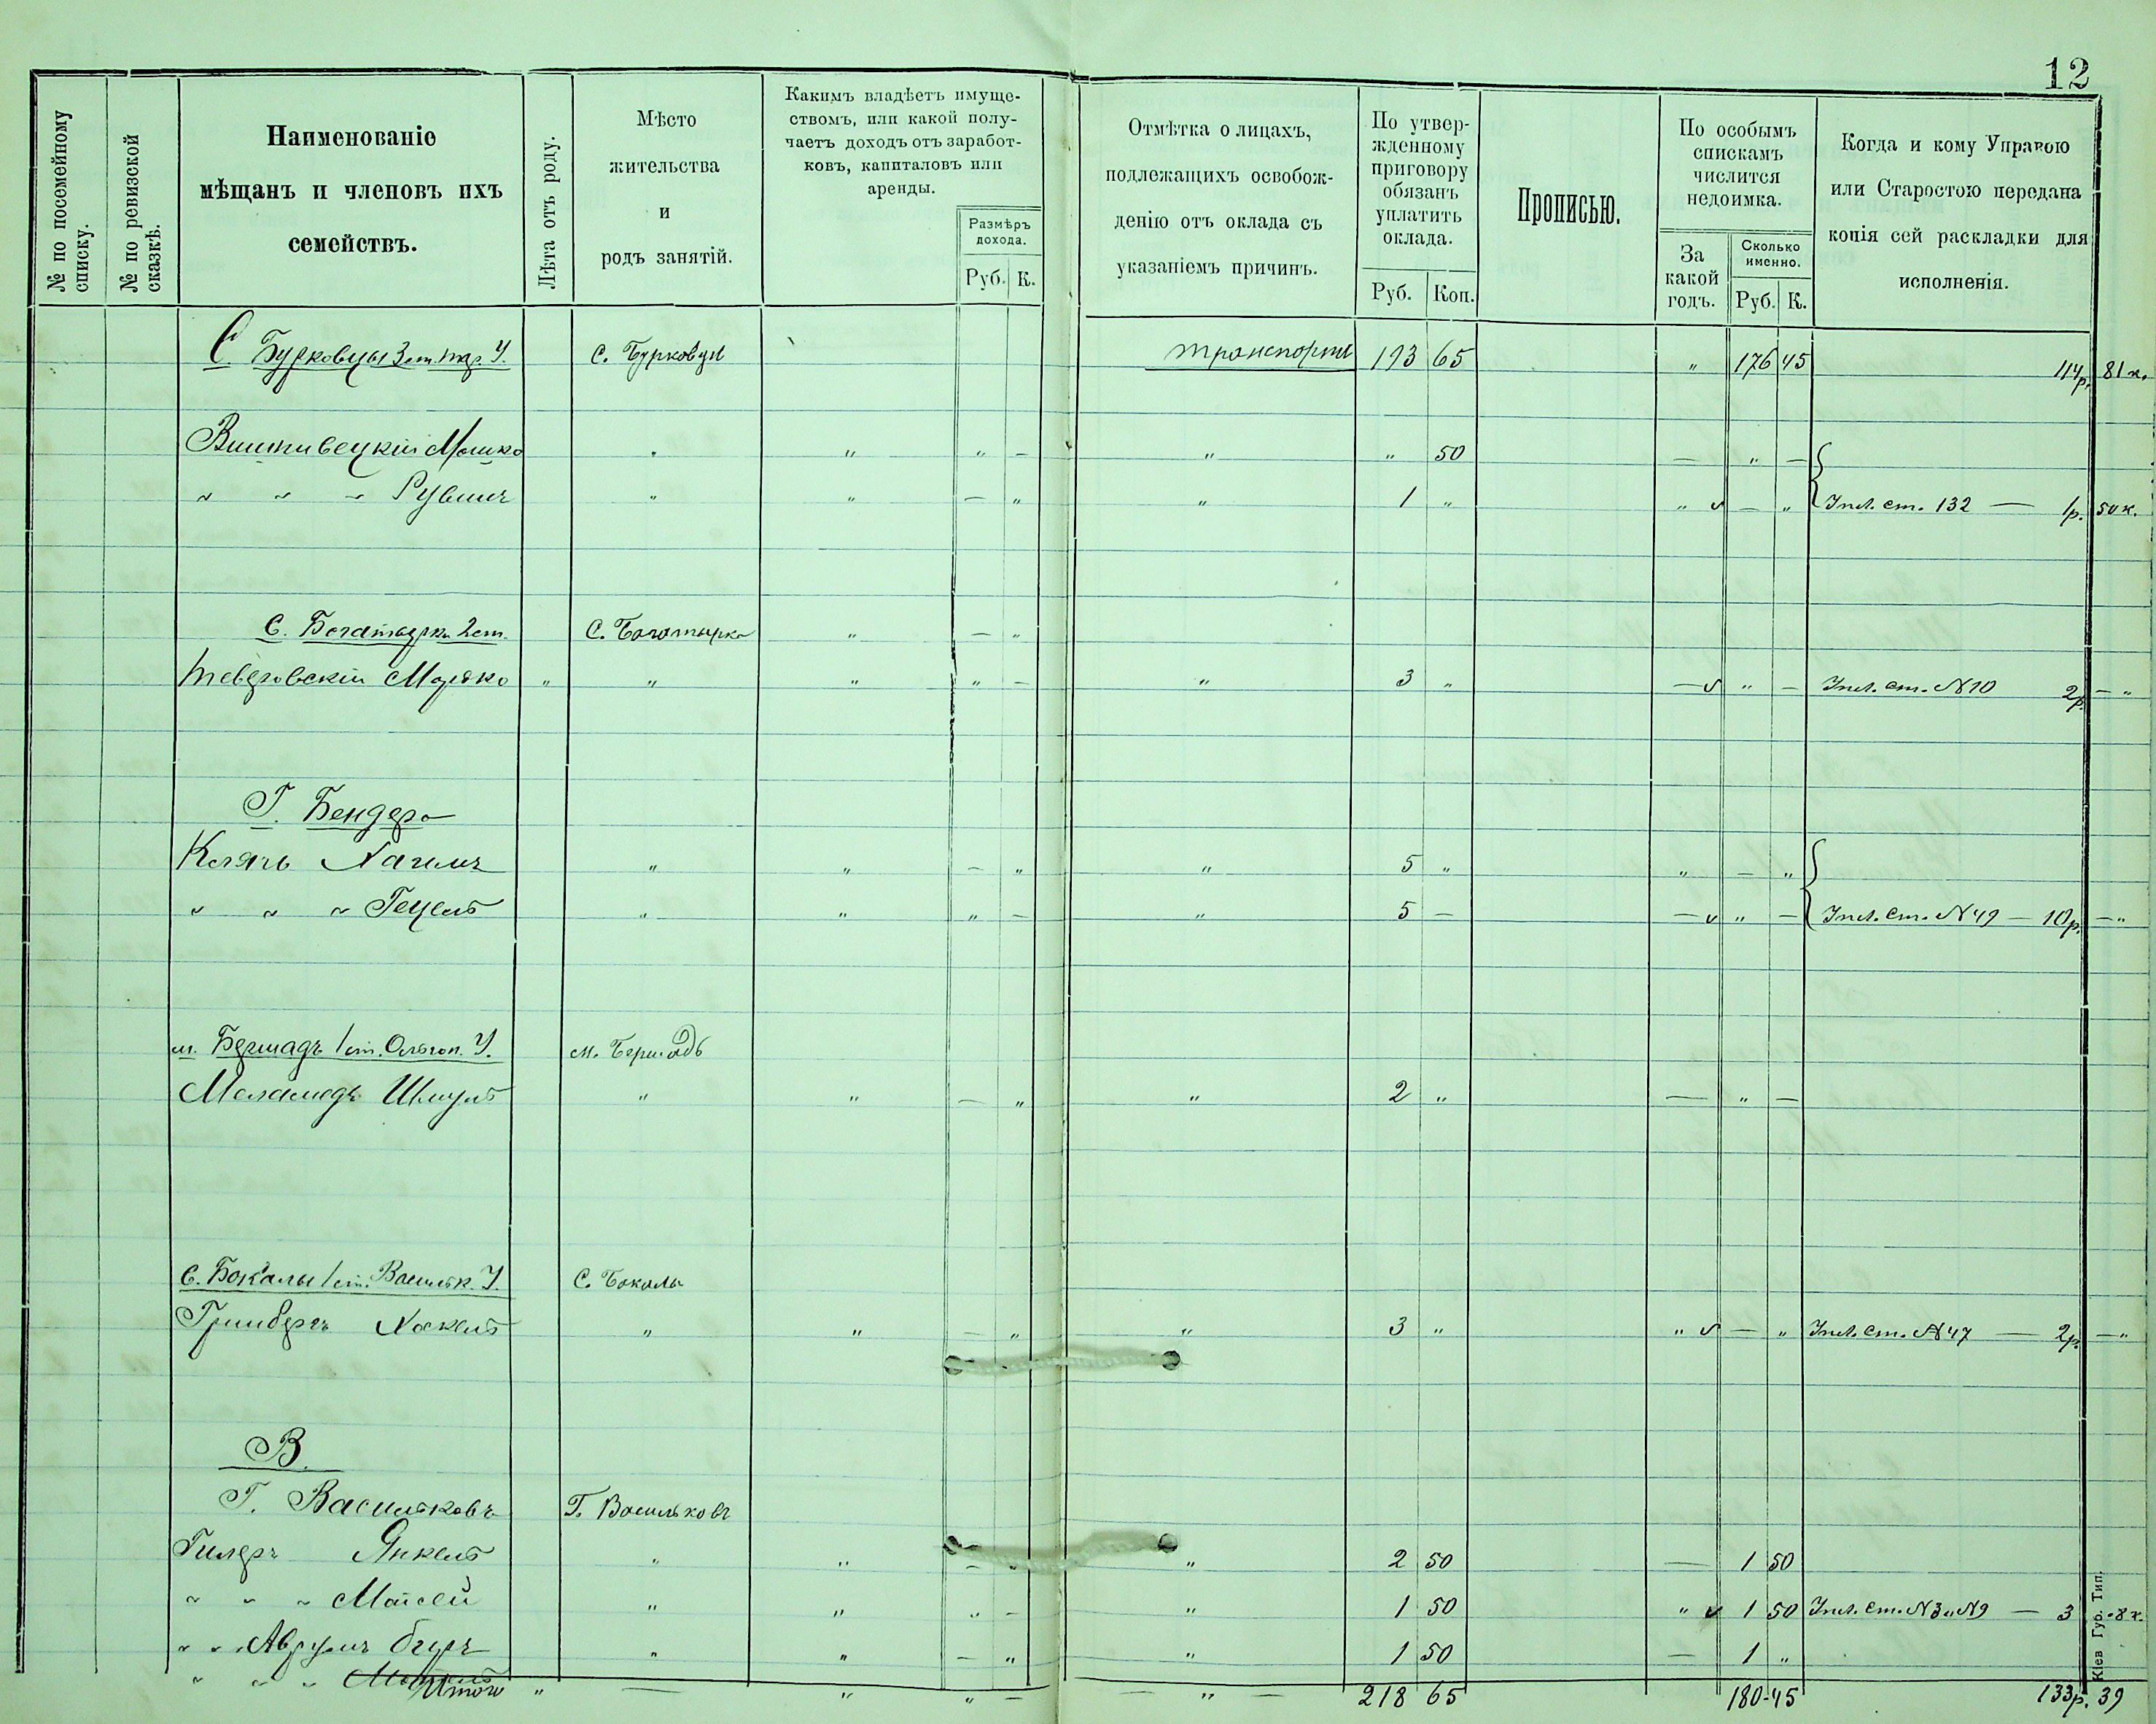 12
№ по посемейному списку.
№ по ревизской сказкѣ.
Наименованіе
мѣщанъ и членовъ ихъ
семействъ.
Лѣта отъ роду.
Мѣсто
жительства
и
родъ занятій.
Какимъ владѣетъ имуще-
ствомъ, или какой полу-
чаетъ доходъ отъ заработ-
ковъ, капиталовъ или
аренды.
Размѣръ
дохода.
Руб. К.
Отмѣтка о лицахъ,
подлежащихъ освобож-
денію отъ оклада съ
указаніемъ причинъ.
По утвер-
жденному
приговору
обязанъ
уплатить
оклада.
Руб. Коп.
Прописью.
По особымъ
спискамъ
числится
недоимка.
За
какой
годъ.
Сколько
именно.
Руб. К.
Когда и кому Управою
или Старостою передана
копія сей раскладки для
исполненія.
С. Бурковцы 3 ст. У. С. Бурковцы транспортъ 193 65 " 176 45 114р. 81к.
Мошко " " " — " " 50 — " —
" " " Рувинъ " " — " " 1 " " — " ст. 132 — 1р. 50к.
С. Богатырка 2 ст. С. Богатырка " — "
Мошко " " " " — " 3 " — " — ст. №10 2р. — "
Г. Бендера
" " — " " 5 " " — "
" " " Гецель " " " — " 5 — — " — ст. №49 — 10р. — "
м. Бершадь 1 ст. Ольгоп. У. м. Бершадь
Меламедъ Шмуль " " — " " 2 " — " —
С. Бокалы 1 ст. Васильк. У. С. Бокалы
Гринбергъ Хаскель " " — " " 3 " " — " ст. №47 — 2р. — "
В.
Г. Васильковъ Г. Васильковъ
Гилеръ Янкель " " — " " 2 50 — 1 50
" " " Мойсей " " " — " 1 50 " 1 50 ст. №3 и №9 — 3 " 8к.
" " Аврумъ " " — " " 1 50 — 1 "
Итого " — " " — — " — 218 65 180-45 133р. 39
Кіев Губ. Тип.